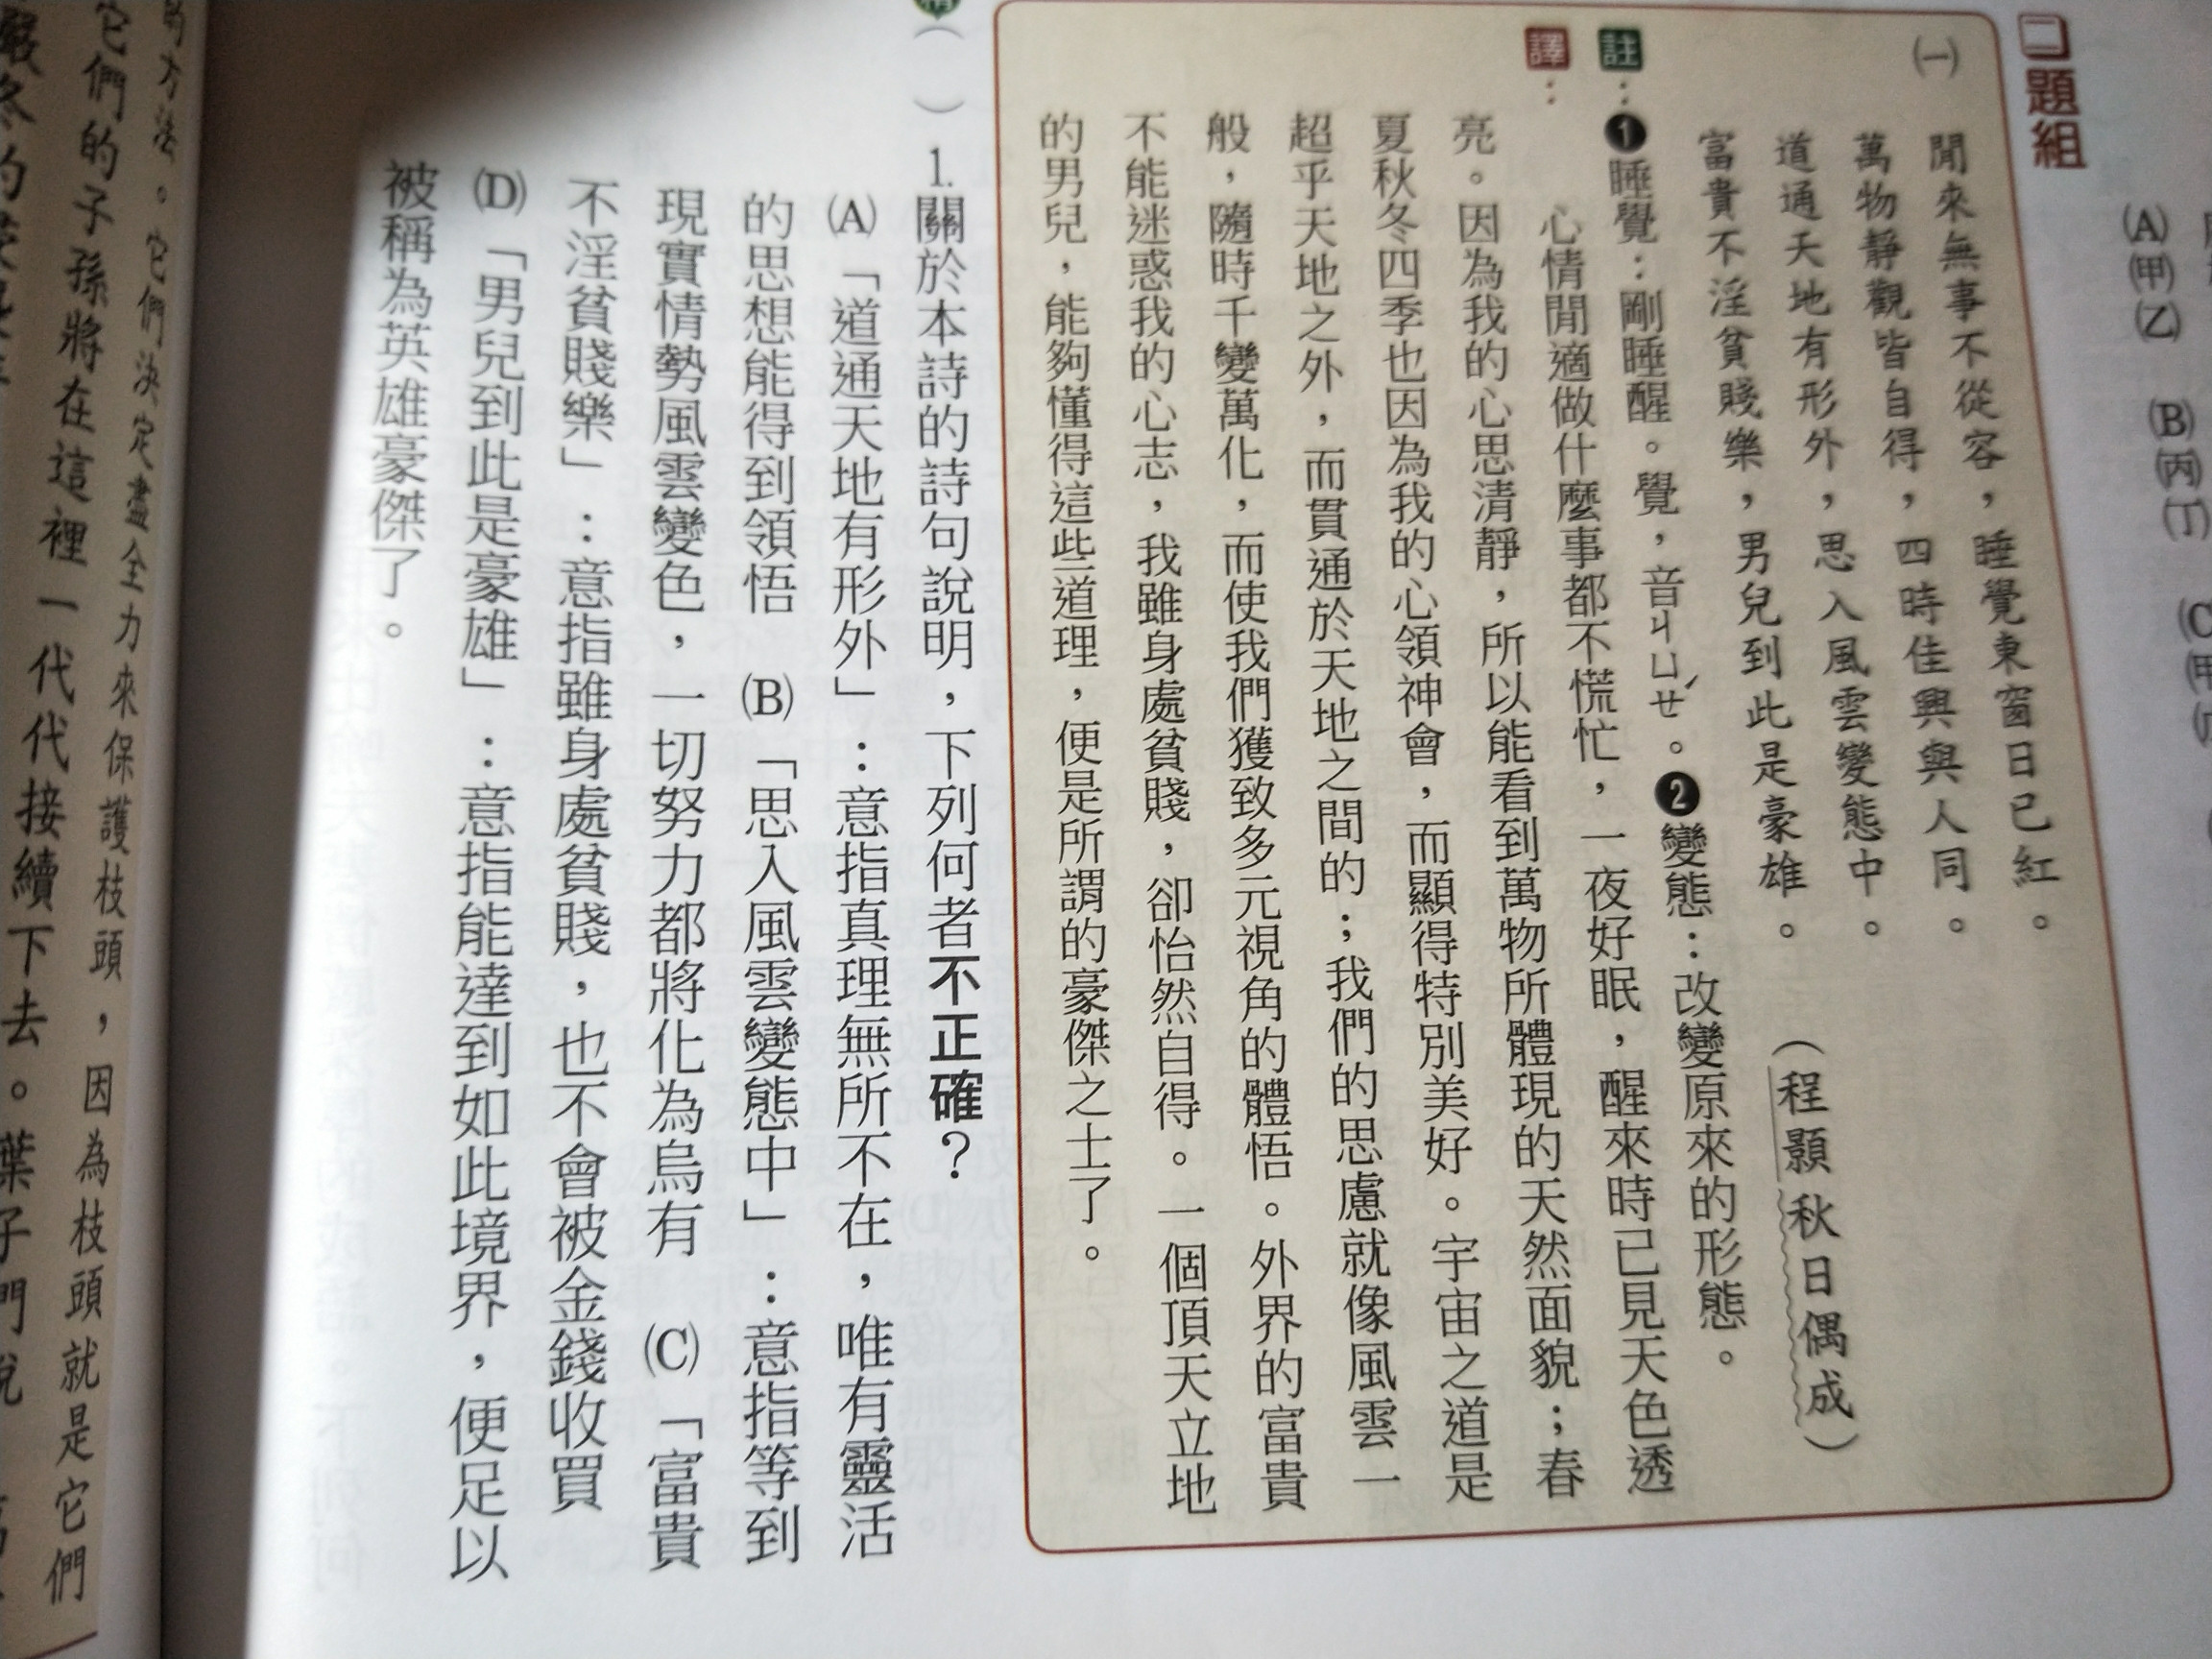 題組
(A)(甲)(乙)　(B)(丙)(丁)
(一)
閒來無事不從容，睡覺東窗日已紅。
萬物靜觀皆自得，四時佳興與人同。
道通天地有形外，思入風雲變態中。
富貴不淫貧賤樂，男兒到此是豪雄。　（程顥秋日偶成）
註：❶睡覺：剛睡醒。覺，音ㄐㄩㄝˊ。❷變態：改變原來的形態。
譯：　心情閒適做什麼事都不慌忙，一夜好眠，醒來時已見天色透
亮。因為我的心思清靜，所以能看到萬物所體現的天然面貌；春
夏秋冬四季也因為我的心領神會，而顯得特別美好。宇宙之道是
超乎天地之外，而貫通於天地之間的；我們的思慮就像風雲一
般，隨時千變萬化，而使我們獲致多元視角的體悟。外界的富貴
不能迷惑我的心志，我雖身處貧賤，卻怡然自得。一個頂天立地
的男兒，能夠懂得這些道理，便是所謂的豪傑之士了。
（　）1.關於本詩的詩句說明，下列何者不正確？
(A)「道通天地有形外」：意指真理無所不在，唯有靈活
的思想能得到領悟　(B)「思入風雲變態中」：意指等到
現實情勢風雲變色，一切努力都將化為烏有　(C)「富貴
不淫貧賤樂」：意指雖身處貧賤，也不會被金錢收買
(D)「男兒到此是豪雄」：意指能達到如此境界，便足以
被稱為英雄豪傑了。
方法。它們決定盡全力來保護枝頭，因為枝頭就是它們
它們的子孫將在這裡一代代接續下去。葉子們說